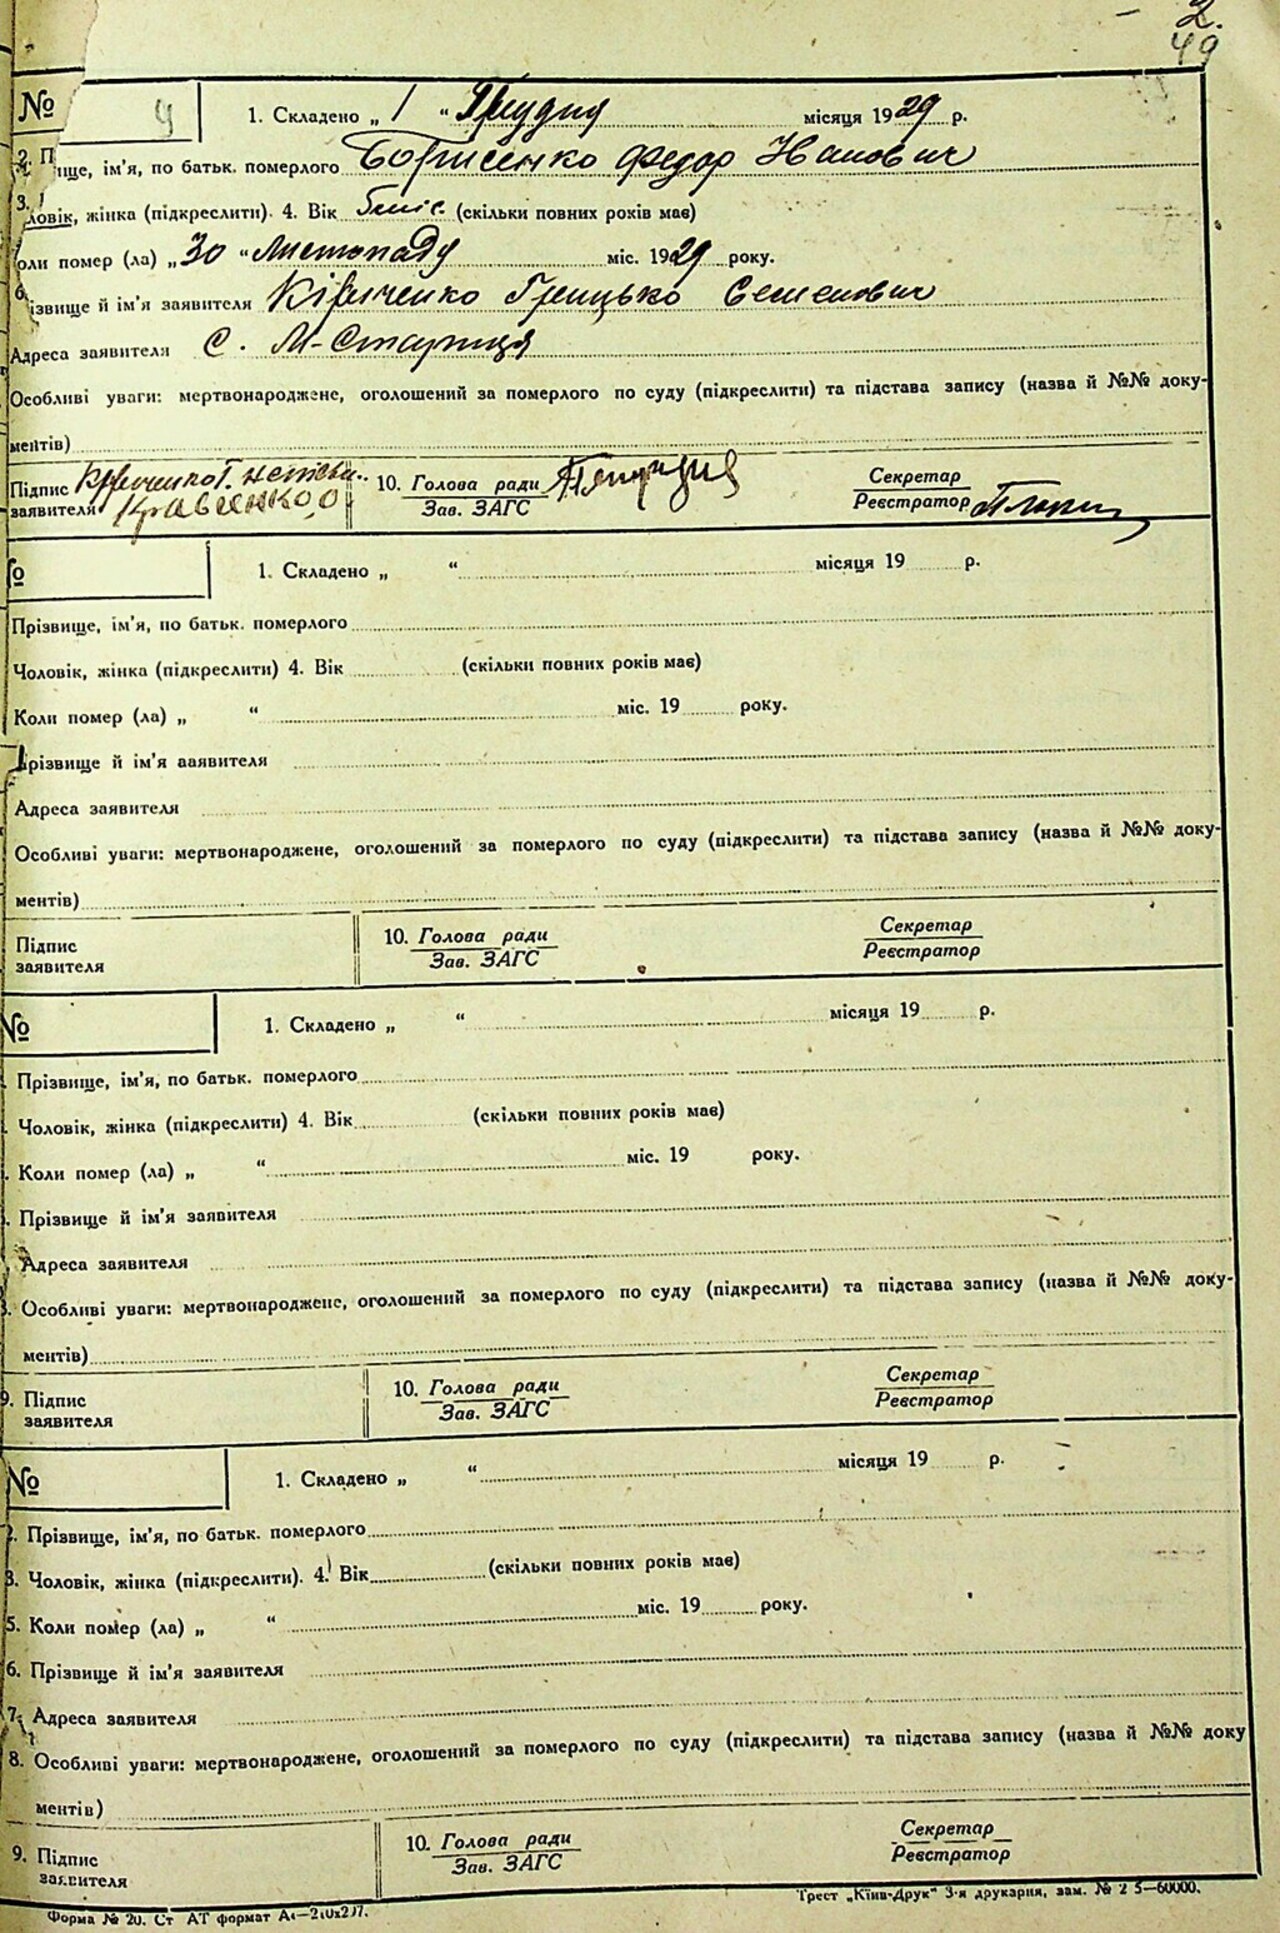 2.
49
№ 4 1. Складено „ 1 “ Грудня місяця 1929 р.
2. П ище, ім'я, по батьк. померлого Борисенко Федор Иванович
3. ловік, жінка (підкреслити). 4. Вік 6 міс. (скільки повних років має)
оли помер (ла) „ 30 “ Листопаду міс. 1929 року.
6 ізвище й ім'я заявителя Кириченко Грицько Семенович
Адреса заявителя С. М-Стариця
Особливі уваги: мертвонароджене, оголошений за померлого по суду (підкреслити) та підстава запису (назва й №№ доку-
ментів)
Підпис заявителя Кравченко, О 10. Голова ради Зав. ЗАГС Секретар Реєстратор
о 1. Складено „ “ місяця 19 р.
Прізвище, ім'я, по батьк. померлого
Чоловік, жінка (підкреслити) 4. Вік (скільки повних років має)
Коли помер (ла) „ “ міс. 19 року.
Прізвище й ім'я заявителя
Адреса заявителя
Особливі уваги: мертвонароджене, оголошений за померлого по суду (підкреслити) та підстава запису (назва й №№ доку-
ментів)
Підпис 10. Голова ради Секретар
заявителя Зав. ЗАГС Реєстратор
№ 1. Складено „ “ місяця 19 р.
Прізвище, ім'я, по батьк. померлого
. Чоловік, жінка (підкреслити) 4. Вік (скільки повних років має)
. Коли помер (ла) „ “ міс. 19 року.
. Прізвище й ім'я заявителя
Адреса заявителя
8. Особливі уваги: мертвонароджене, оголошений за померлого по суду (підкреслити) та підстава запису (назва й №№ доку-
ментів)
9. Підпис 10. Голова ради Секретар
заявителя Зав. ЗАГС Реєстратор
№ 1. Складено „ “ місяця 19 р.
2. Прізвище, ім'я, по батьк. померлого
3. Чоловік, жінка (підкреслити). 4. Вік (скільки повних років має)
5. Коли помер (ла) „ “ міс. 19 року.
6. Прізвище й ім'я заявителя
7. Адреса заявителя
8. Особливі уваги: мертвонароджене, оголошений за померлого по суду (підкреслити) та підстава запису (назва й №№ доку
ментів)
9. Підпис 10. Голова ради Секретар
заявителя Зав. ЗАГС Реєстратор
Трест „Київ-Друк“ 3-я друкарня, зам. № 2 5—60000.
Форма № 20. Ст АТ формат А4—210х297.